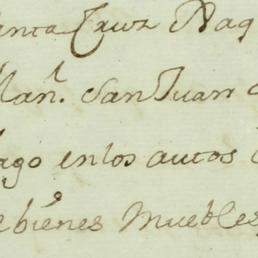 anta Cruz Naq
Man.l San Juan
ago en los autos
e bienes muebles